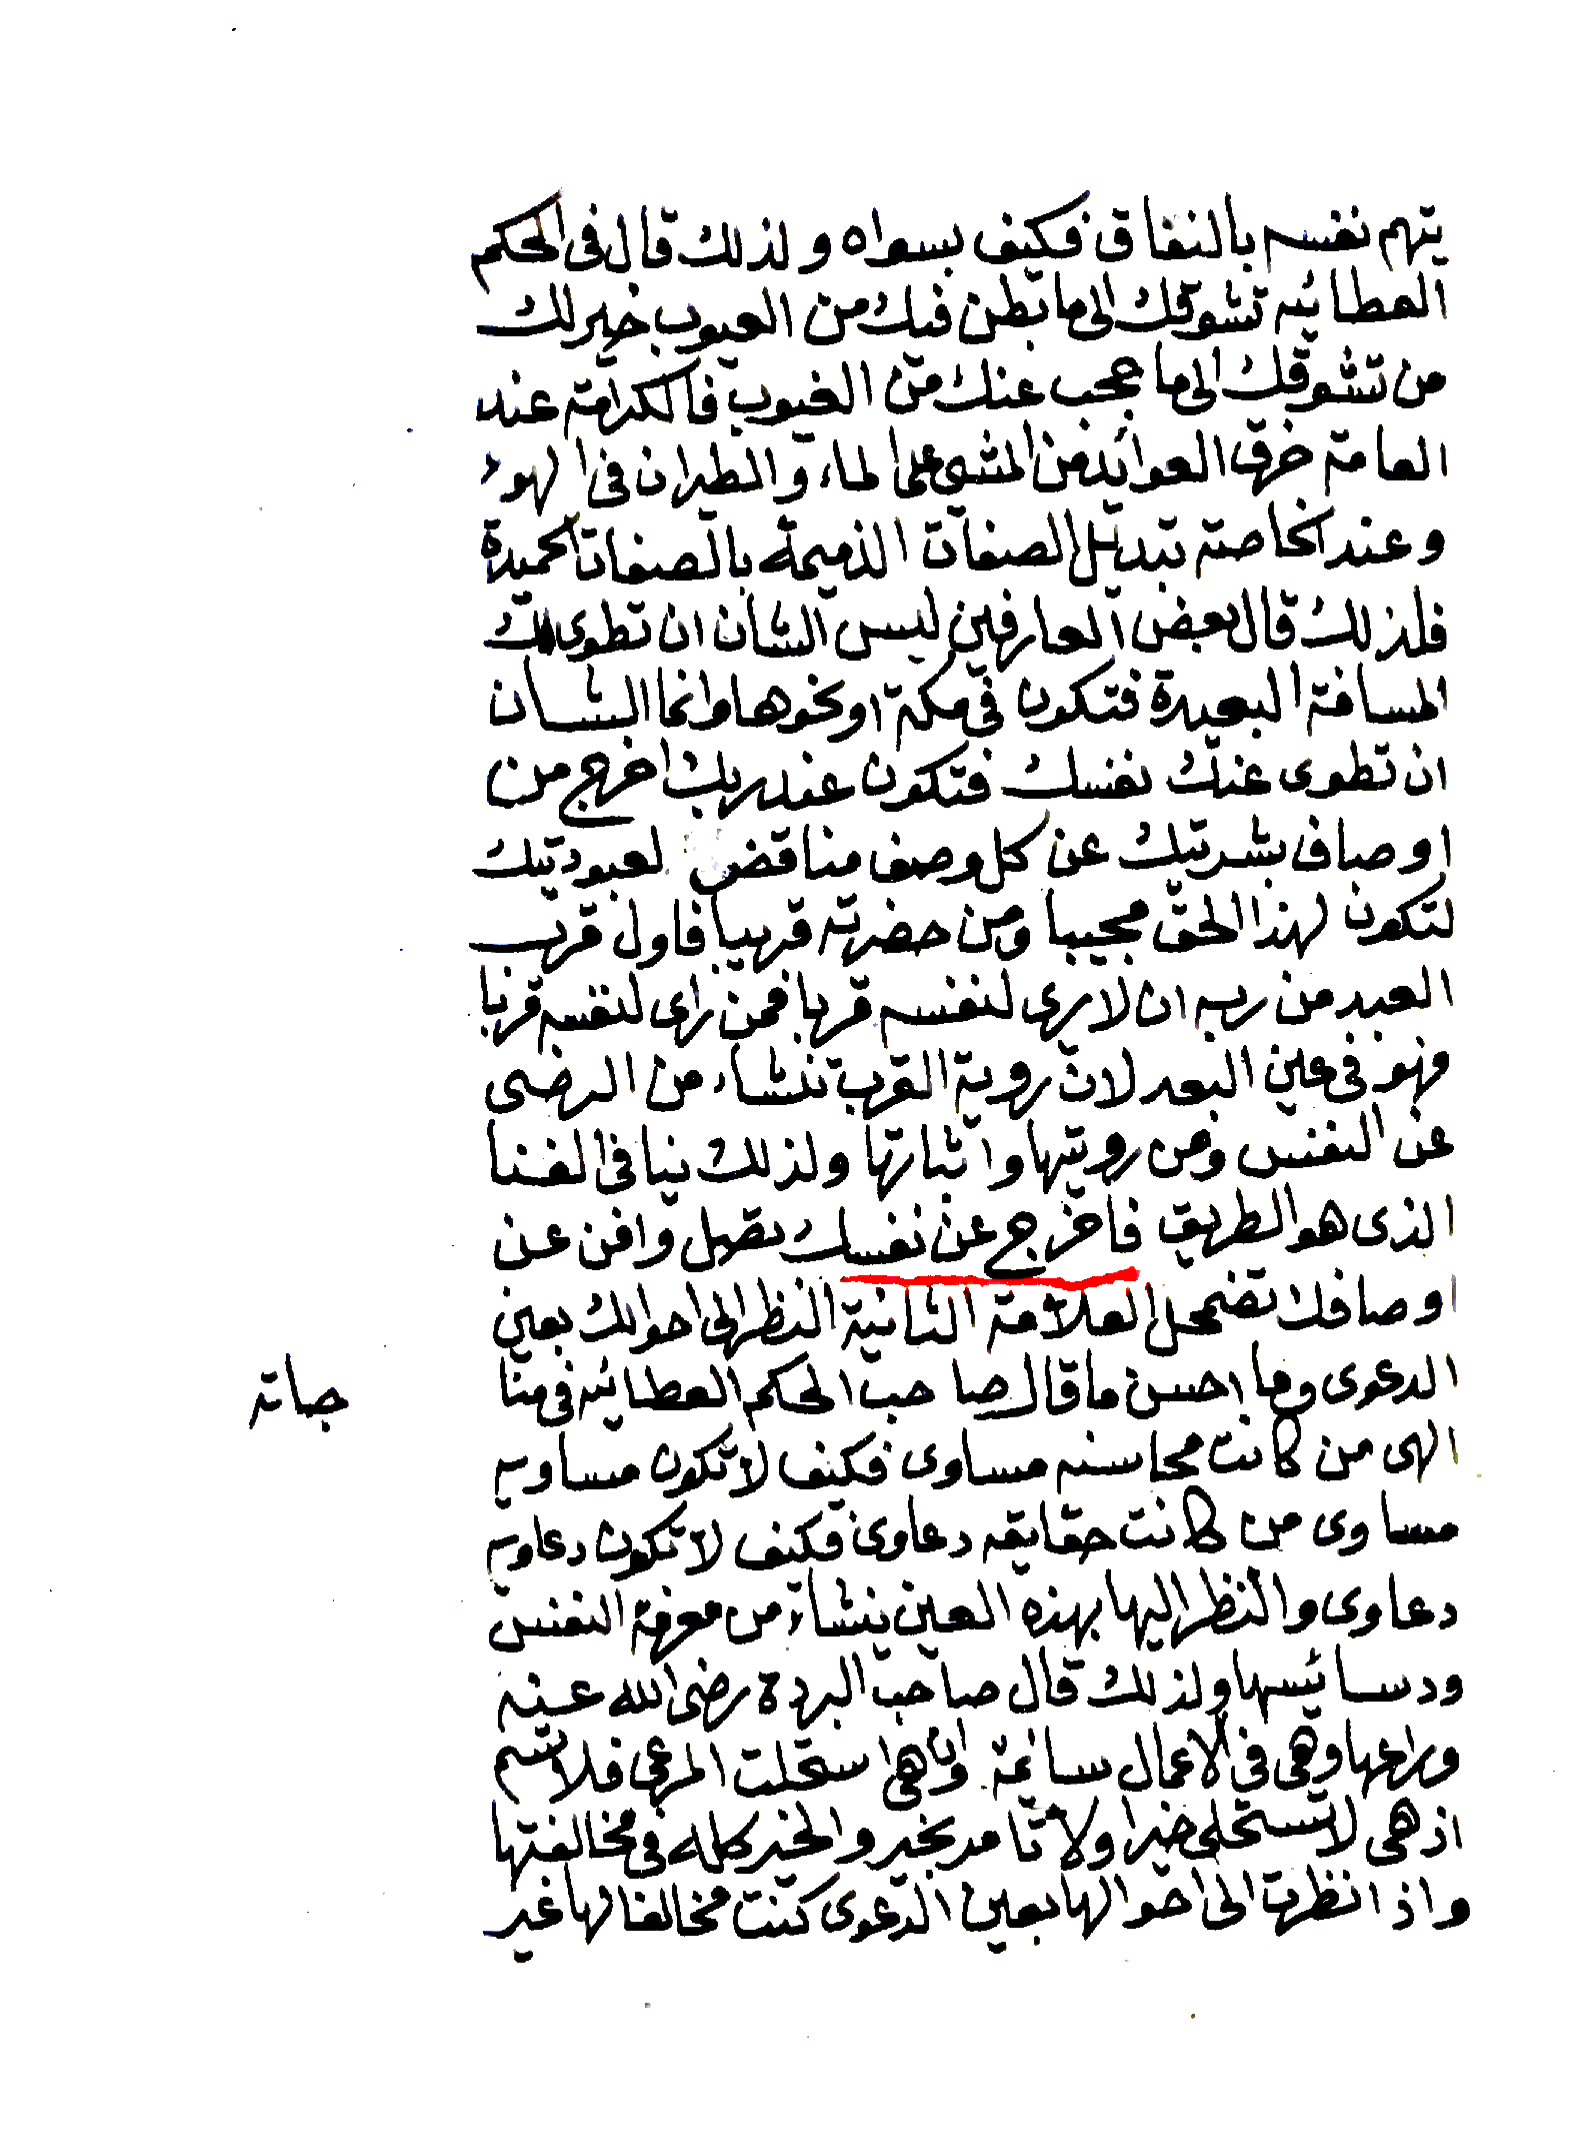 يتهم نفسه بالنفاق فكيف بسواه ولذلك قال فى الحكم
العطائيه تشوقك الى ما بطن فيك من العيوب خير لك
من تشوقك الى ما حجب عنك من الغيوب فالكرامة عند
العامة خرق العوائد من المشى على الماء والطيران فى الهوء
وعند الخاصة تبديل الصفات الذميمة بالصفات الحميدة
فلذلك قال بعض العارفين ليس الشان ان تطوى لك
المسافة البعيدة فتكون فى مكة او نحوها وانما الشان
ان تطوى عنك نفسك فتكون عند ربك اخرج من
اوصاف بشريتك عن كل وصف مناقض لعبوديتك
لتكون لهذا الحق مجيبا ومن حضرته قريبا فاول قرب
العبد من ربه ان لا يرى لنفسه قربا فمن راى لنفسه قربا
فهو فى عين البعد لان روية القرب تنشاء من الرضى
عن النفس ومن رويتها واثباتها ولذلك ينافى الفنا
الذى هو الطريق فاخرج عن نفسك تصل وافن عن
اوصافك تضمحل العلامة الثانية النظر الى احوالك بعين
الدعوى وما احسن ما قال صاحب الحكم العطائيه فى منا
جاته
الهى من كانت محاسنه مساوى فكيف لا تكون مساويه
مساوى من كانت حقايقه دعاوى فكيف لا تكون دعاويه
دعاوى والنظر اليها بهذه العين ينشاء من معرفة النفس
ودسائسها ولذلك قال صاحب البردة رضى الله عنه
وراعها وهى فى الاعمال سائمة وان هى استحلت المرعى فلا تسم
اذ هى لا تستحلى خيرا ولا تامر بخير والخير كله فى مخالفتها
واذا نظرت الى احوالها بعين الدعوى كنت مخالفا لها غير